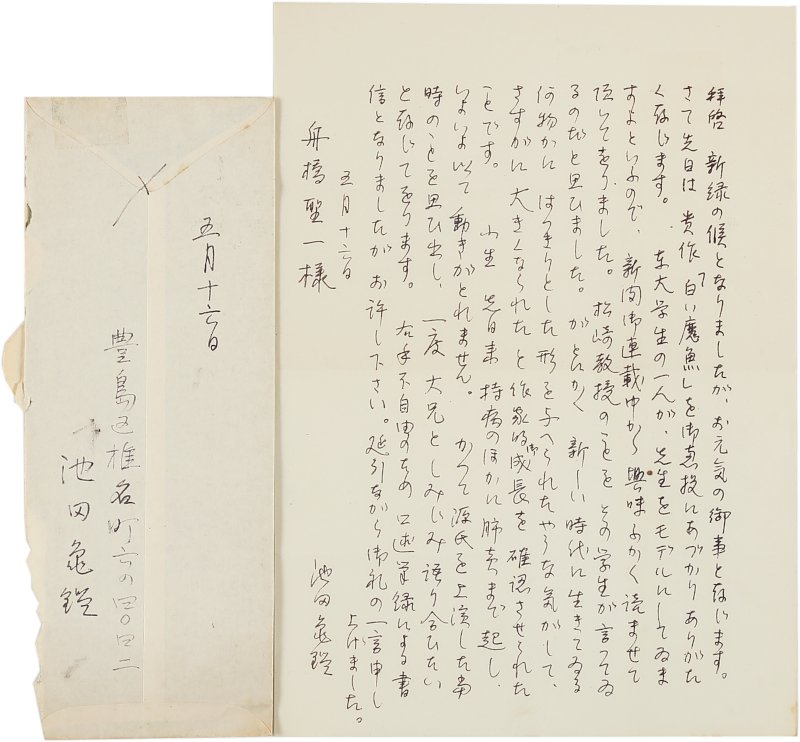 拝啓 新緑の候となりましたが、お元気の御事と存じます。
さて先日は 貴作「白い魔魚」を御恵投にあづかりありがた
く存じます。 東大学生の一人が、先生をモデルにしてゐま
すよといふので、新聞御連載中から興味ふかく読ませて
頂いてをりました。松崎教授のことを その学生が言つてゐ
るのだと思ひました。がとにかく 新しい時代に生きてゐる
何物かに はつきりとした形を与へられたやうな気がして、
さすがに大きくなられた と作家的御成長を確認させられた
ことです。 小生 先日来 持病のほかに肺炎まで起し、
いよいよ以て動きがとれません。 かつて源氏を上演した当
時のことを思ひ出し、一度 大兄としみじみ語り合ひたい
と存じてをります。 右手不自由のため口述筆録による書
信となりましたがお許し下さい。延引ながら御礼の一言申し
上げました。
五月十六日
池田亀鑑
舟橋聖一様
五月十六日
豊島区椎名町六の四〇四二
池田亀鑑